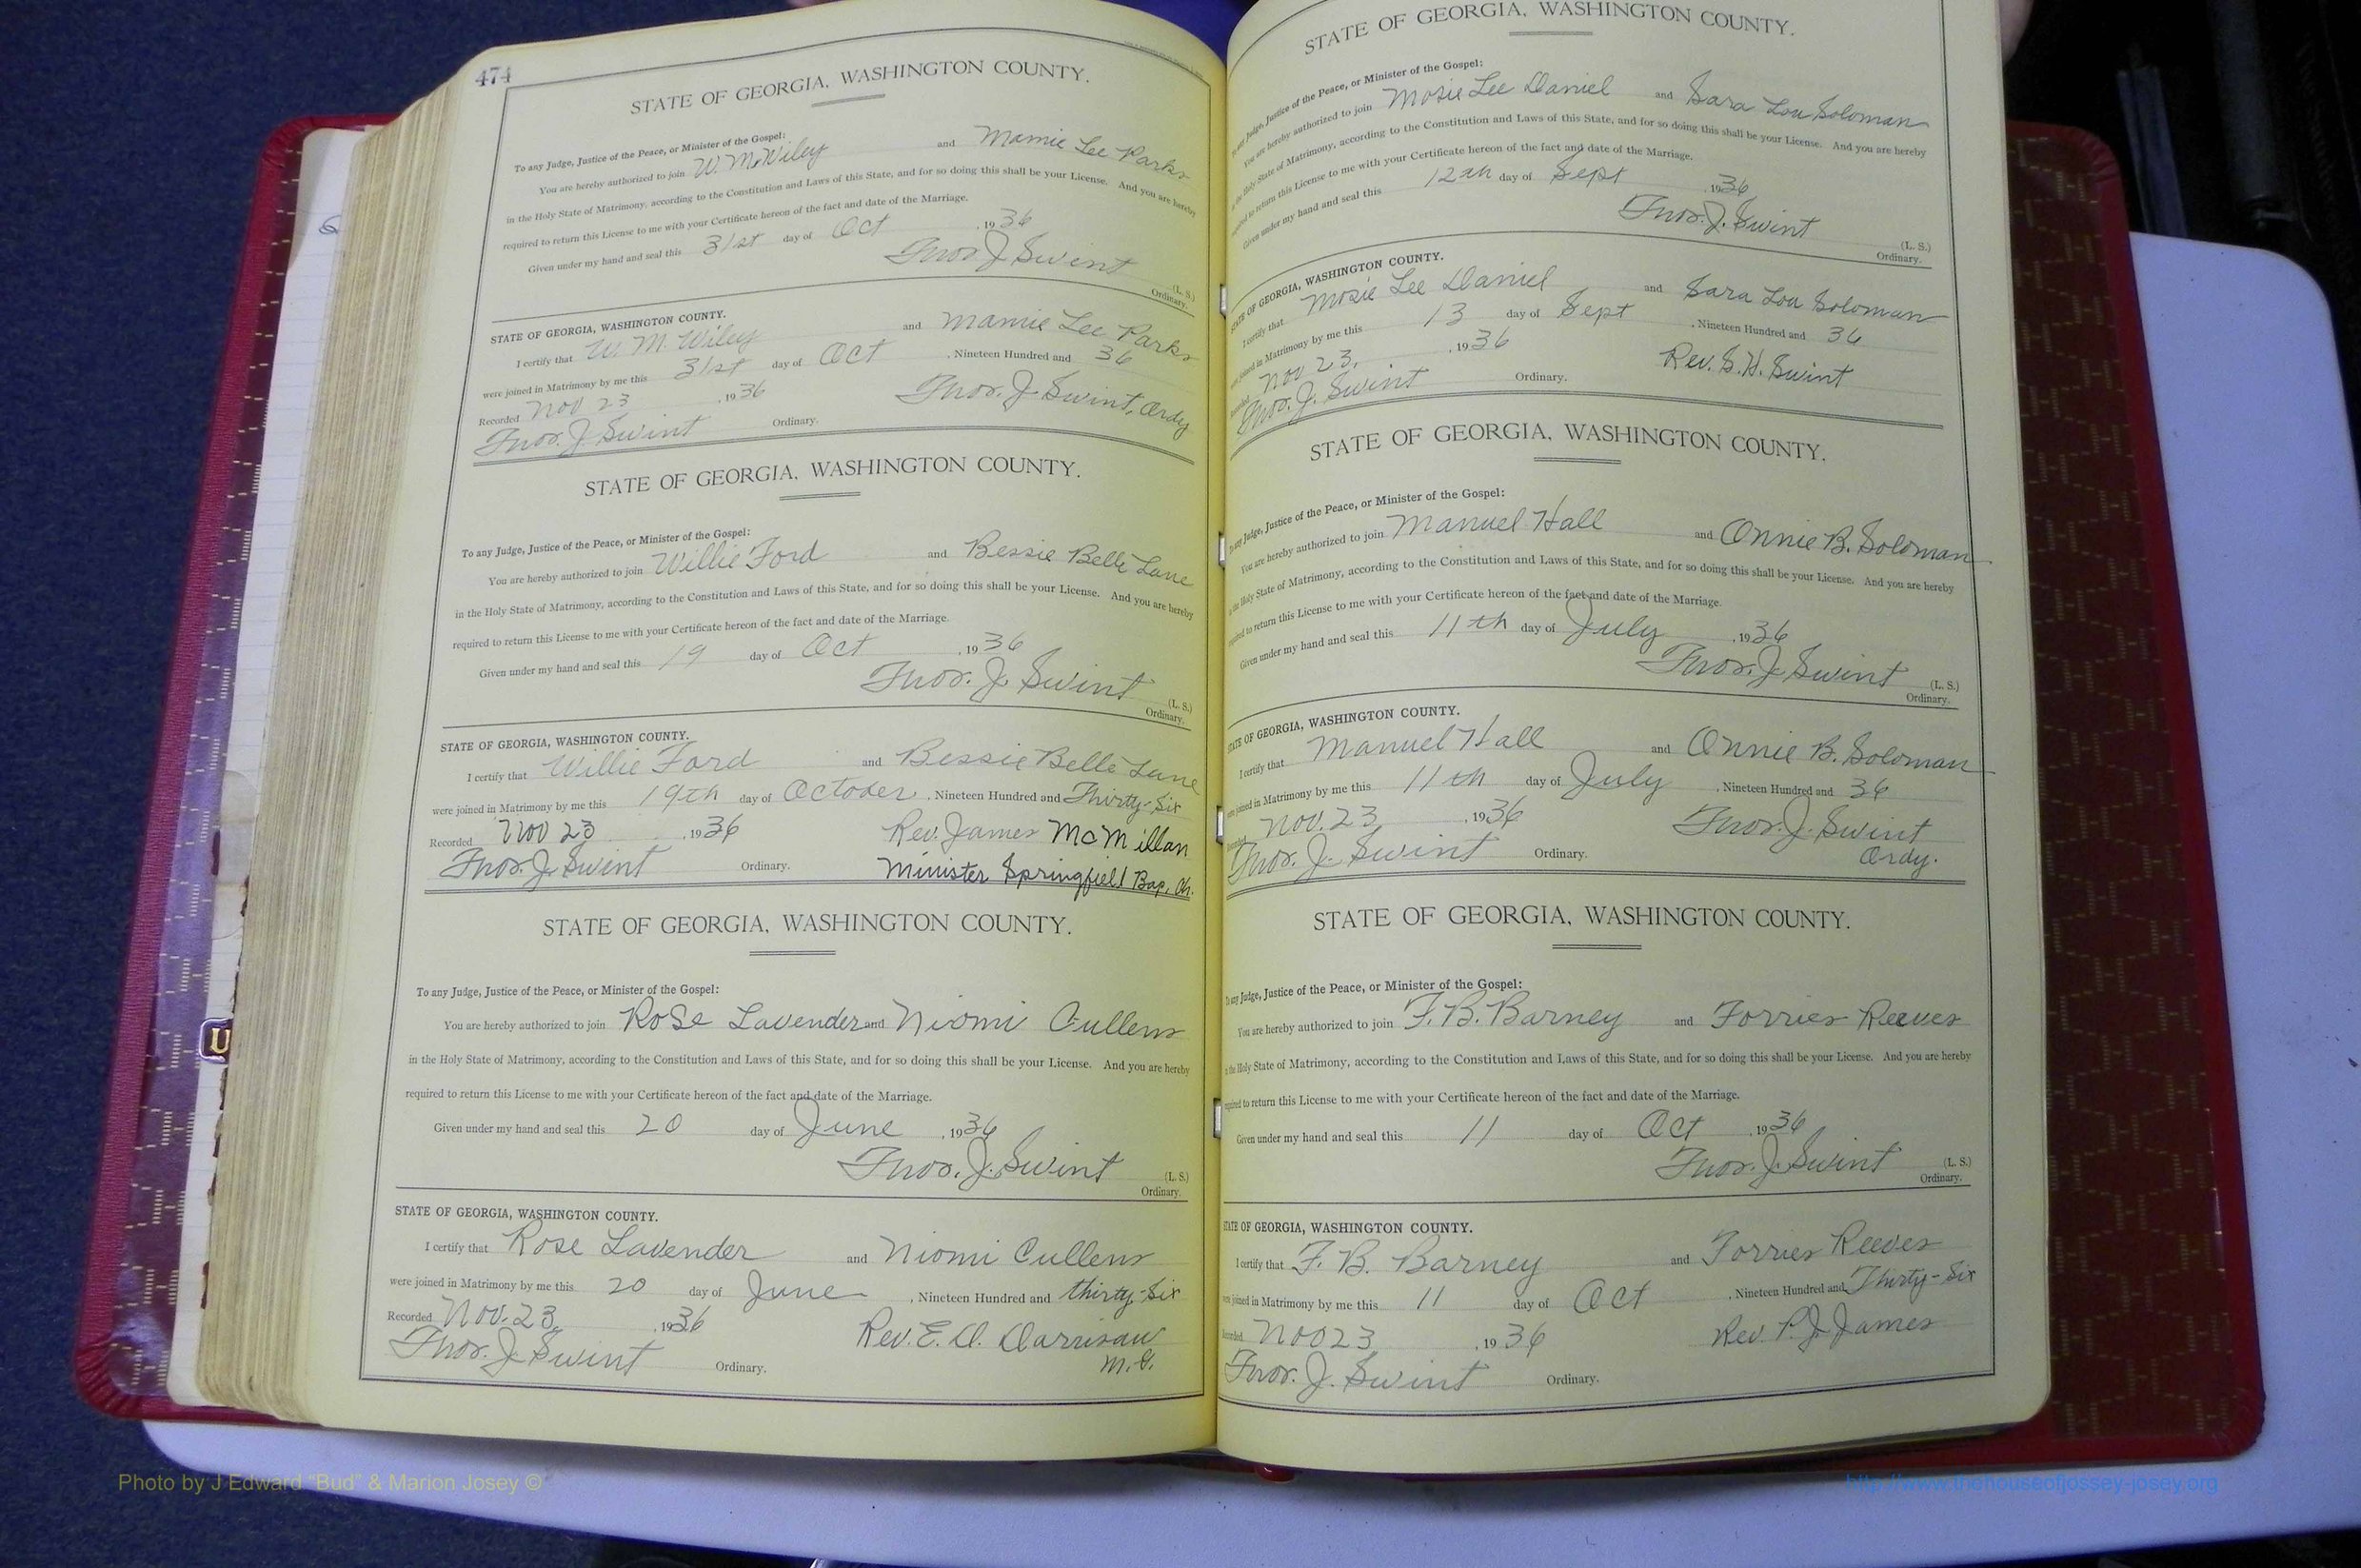 474
STATE OF GEORGIA, WASHINGTON COUNTY.
To any Judge, Justice of the Peace, or Minister of the Gospel:
You are hereby authorized to join W. M. Wiley and Mamie Lee Parks
in the Holy State of Matrimony, according to the Constitution and Laws of this State, and for so doing this shall be your License. And you are hereby
required to return this License to me with your Certificate hereon of the fact and date of the Marriage.
Given under my hand and seal this 31st day of Oct , 1936
Thos. J. Swint (L. S.)
Ordinary.
STATE OF GEORGIA, WASHINGTON COUNTY.
I certify that W. M. Wiley and Mamie Lee Parks
were joined in Matrimony by me this 31st day of Oct , Nineteen Hundred and 36
Recorded Nov 23 , 1936 Thos. J. Swint, Ordy
Thos. J. Swint Ordinary.
STATE OF GEORGIA, WASHINGTON COUNTY.
To any Judge, Justice of the Peace, or Minister of the Gospel:
You are hereby authorized to join Willie Ford and Bessie Belle Lane
in the Holy State of Matrimony, according to the Constitution and Laws of this State, and for so doing this shall be your License. And you are hereby
required to return this License to me with your Certificate hereon of the fact and date of the Marriage.
Given under my hand and seal this 19 day of Oct , 1936
Thos. J. Swint (L. S.)
Ordinary.
STATE OF GEORGIA, WASHINGTON COUNTY.
I certify that Willie Ford and Bessie Belle Lane
were joined in Matrimony by me this 19th day of October , Nineteen Hundred and Thirty-Six
Recorded Nov 23 , 1936 Rev. James McMillan
Thos. J. Swint Ordinary. Minister Springfield Bap. Ch.
STATE OF GEORGIA, WASHINGTON COUNTY.
To any Judge, Justice of the Peace, or Minister of the Gospel:
You are hereby authorized to join Rose Lavender and Niomi Cullens
in the Holy State of Matrimony, according to the Constitution and Laws of this State, and for so doing this shall be your License. And you are hereby
required to return this License to me with your Certificate hereon of the fact and date of the Marriage.
Given under my hand and seal this 20 day of June , 1936
Thos. J. Swint (L. S.)
Ordinary.
STATE OF GEORGIA, WASHINGTON COUNTY.
I certify that Rose Lavender and Niomi Cullens
were joined in Matrimony by me this 20 day of June , Nineteen Hundred and thirty-six
Recorded Nov. 23, , 1936 Rev. E. D. Darrisaw
Thos. J. Swint Ordinary. M. G.
STATE OF GEORGIA, WASHINGTON COUNTY.
To any Judge, Justice of the Peace, or Minister of the Gospel:
You are hereby authorized to join Mosie Lee Daniel and Sara Lou Soloman
in the Holy State of Matrimony, according to the Constitution and Laws of this State, and for so doing this shall be your License. And you are hereby
required to return this License to me with your Certificate hereon of the fact and date of the Marriage.
Given under my hand and seal this 12th day of Sept , 1936
Thos. J. Swint (L. S.)
Ordinary.
STATE OF GEORGIA, WASHINGTON COUNTY.
I certify that Mosie Lee Daniel and Sara Lou Soloman
were joined in Matrimony by me this 13 day of Sept , Nineteen Hundred and 36
Recorded Nov 23, , 1936 Rev. S. H. Swint
Thos. J. Swint Ordinary.
STATE OF GEORGIA, WASHINGTON COUNTY.
To any Judge, Justice of the Peace, or Minister of the Gospel:
You are hereby authorized to join Manuel Hall and Onnie B. Soloman
in the Holy State of Matrimony, according to the Constitution and Laws of this State, and for so doing this shall be your License. And you are hereby
required to return this License to me with your Certificate hereon of the fact and date of the Marriage.
Given under my hand and seal this 11th day of July , 1936
Thos. J. Swint (L. S.)
Ordinary.
STATE OF GEORGIA, WASHINGTON COUNTY.
I certify that Manuel Hall and Onnie B. Soloman
were joined in Matrimony by me this 11th day of July , Nineteen Hundred and 36
Recorded Nov. 23 , 1936 Thos. J. Swint
Thos. J. Swint Ordinary. Ordy.
STATE OF GEORGIA, WASHINGTON COUNTY.
To any Judge, Justice of the Peace, or Minister of the Gospel:
You are hereby authorized to join F. B. Barney and Forries Reeves
in the Holy State of Matrimony, according to the Constitution and Laws of this State, and for so doing this shall be your License. And you are hereby
required to return this License to me with your Certificate hereon of the fact and date of the Marriage.
Given under my hand and seal this 11 day of Oct , 1936
Thos. J. Swint (L. S.)
Ordinary.
STATE OF GEORGIA, WASHINGTON COUNTY.
I certify that F. B. Barney and Torries Reeves
were joined in Matrimony by me this 11 day of Oct , Nineteen Hundred and Thirty-Six
Recorded Nov 23 , 1936 Rev. P. J. James
Thos. J. Swint Ordinary.
Photo by J Edward “Bud” & Marion Josey ©
http://www.thehouseofjossey-josey.org